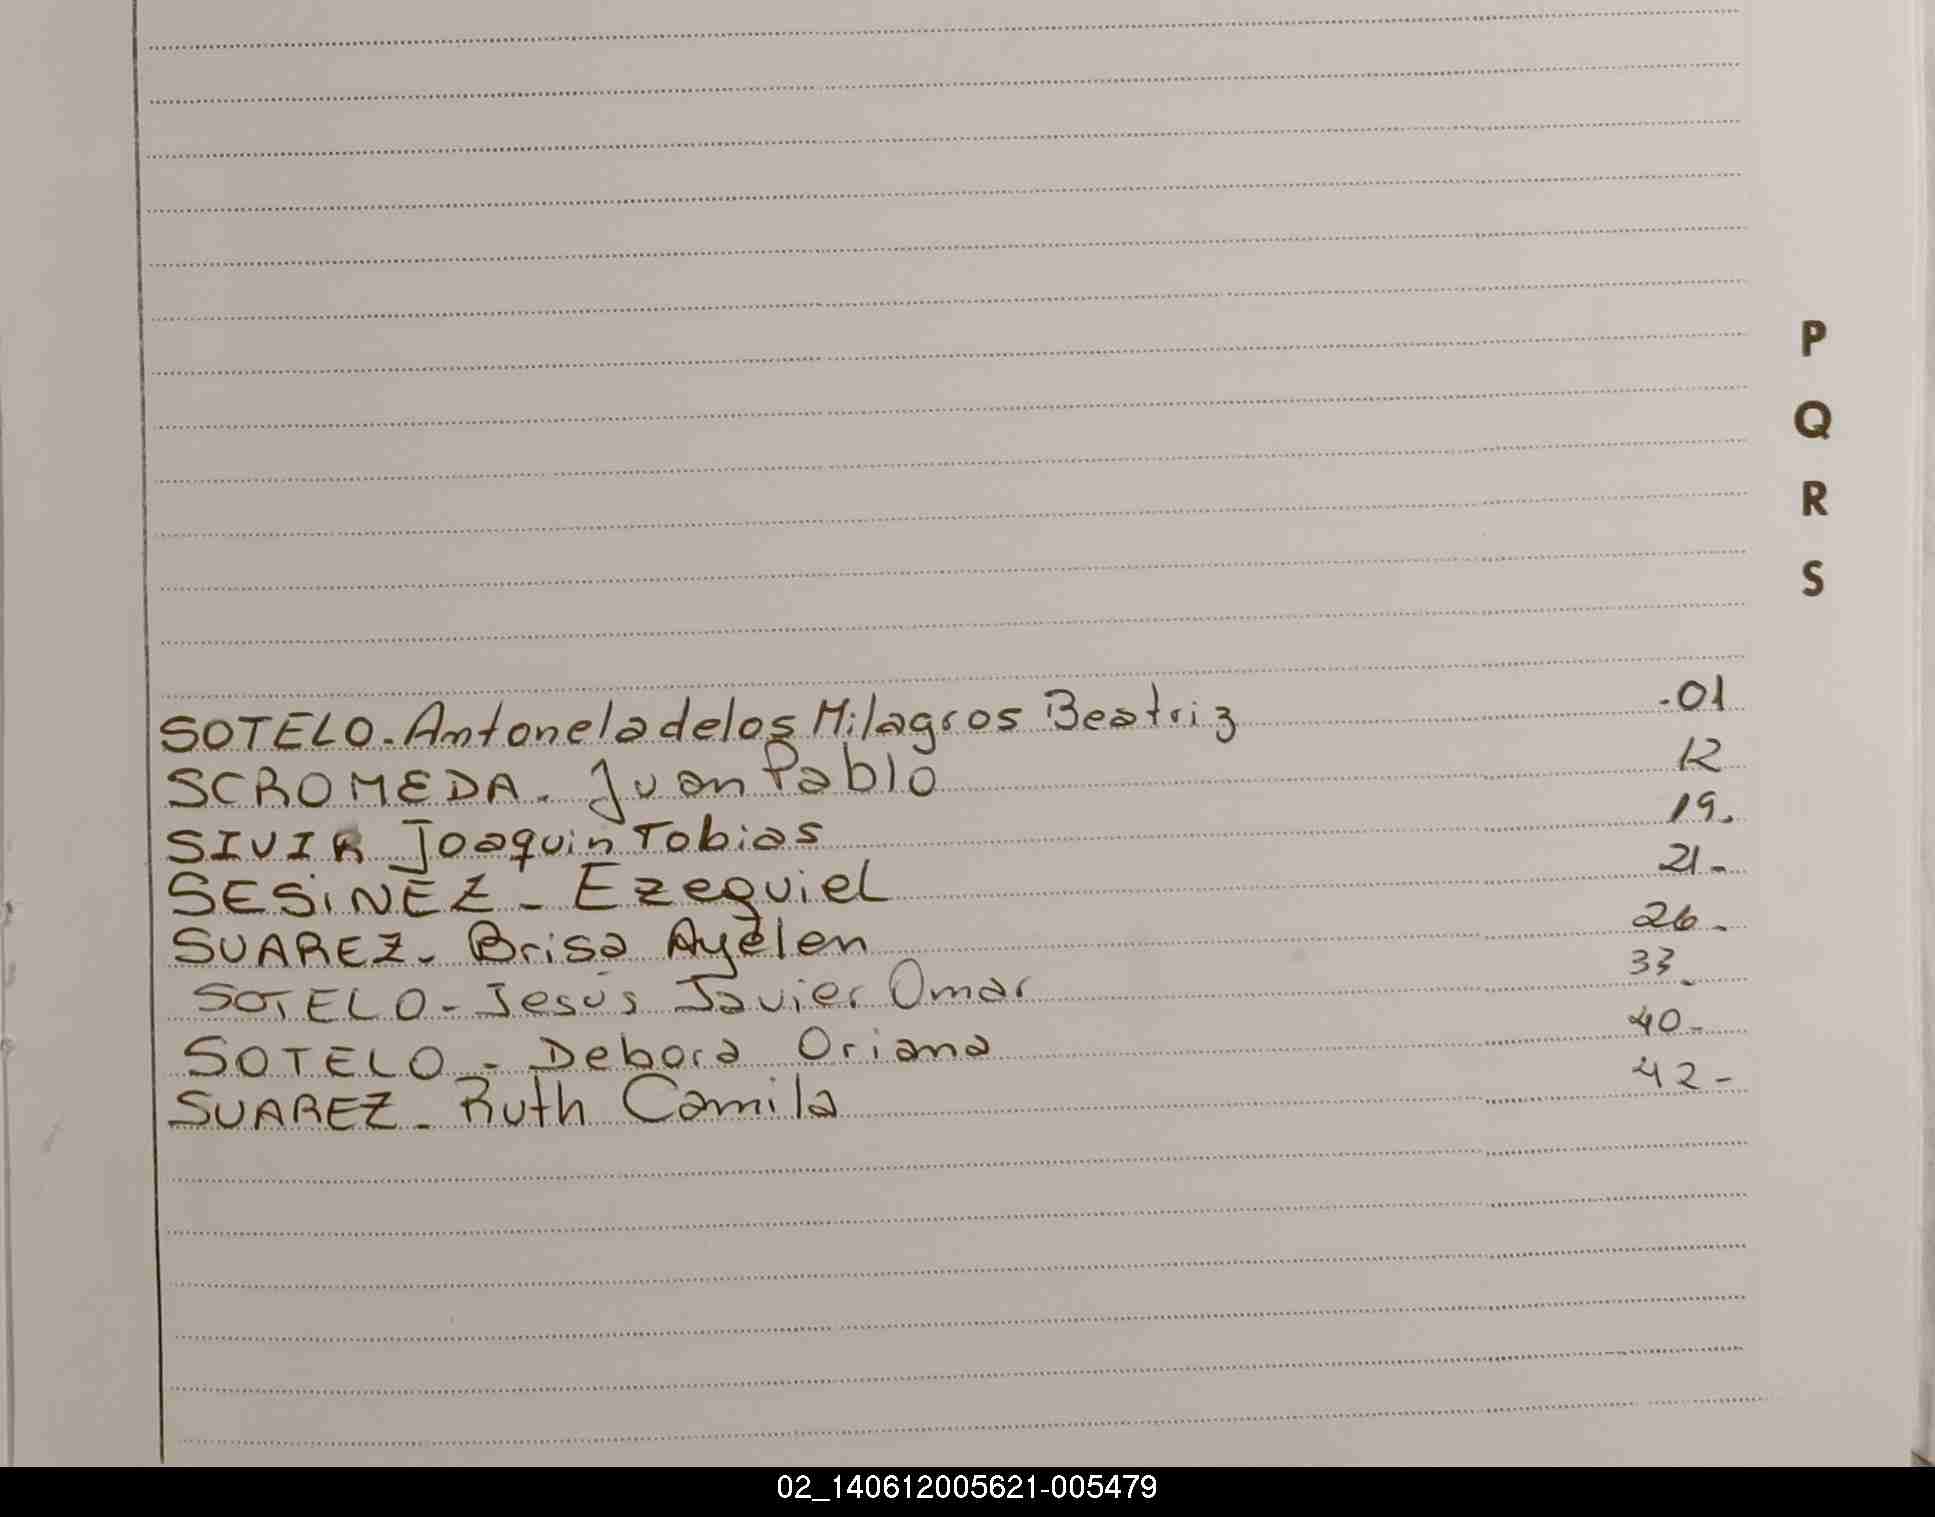 P
Q
R
S
SOTELO. Antonela de los Milagros Beatriz .01
SCROMEDA. Juan Pablo 12
SIVIR Joaquin Tobias 19.
SESiNEZ - Ezequiel 21-
SUAREZ. Brisa Ayelen 26-
SOTELO - Jesús Javier Omar 33-
SOTELO - Debora Oriana 40-
SUAREZ. Ruth Camila 42-
02_140612005621-005479